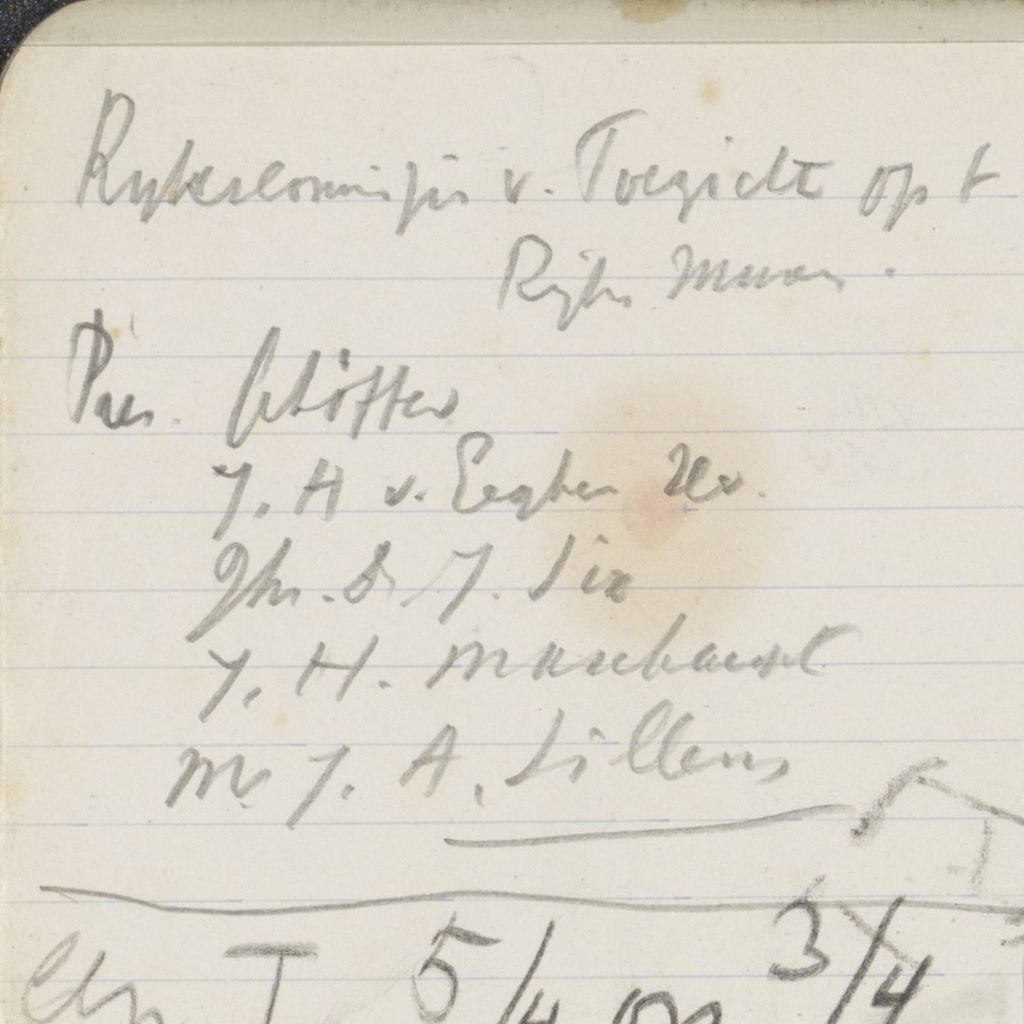 Rykscommissie v. Toezicht op t
Ryks Museum.
Pres. Stöffler
J. H v. Eeghen
Jhr. Dr J. Six
J. H. Marchant
Mr J. A. Sillem
T 5/4 on 3/4